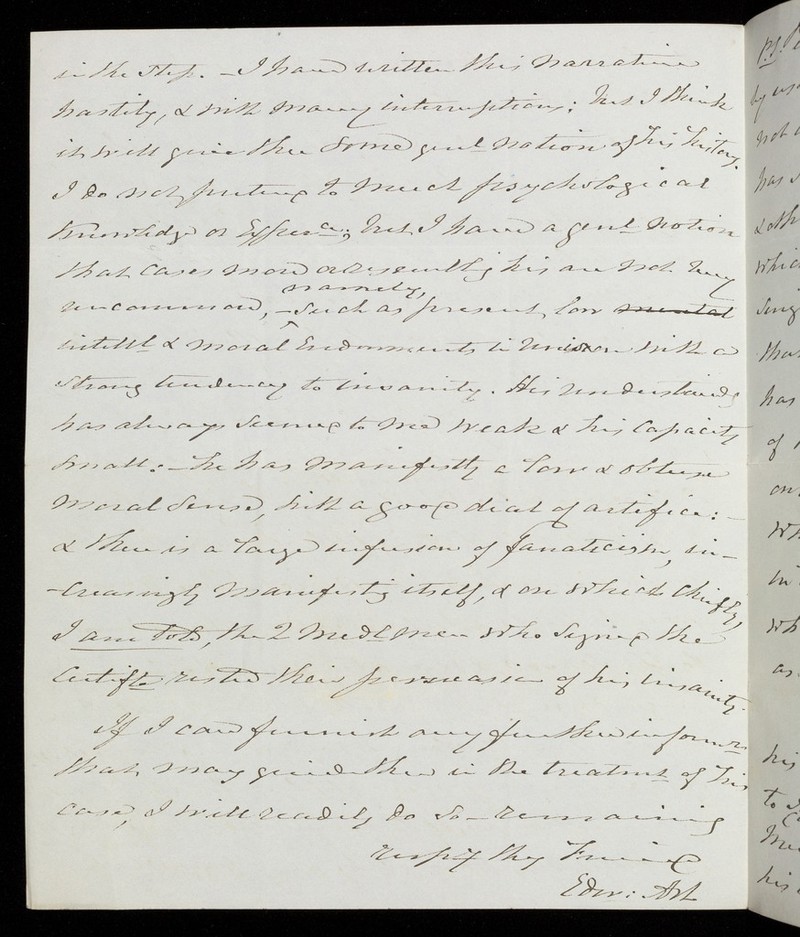 in the step. – I have written this narrative
hastily, & with many interruptions; but I think
it will give thee some genl notion of his history.
I do not pretend to much psychological
knowledge or experce; but I have a genl notion
that cases more or less resemblg his are not very
uncommon, – namely, such as present low mental
intelll & moral endowments in union with a
strong tendency to insanity. His understandg
has always seemed to me weak & his capacity
small: – he has manifestly a low & obtuse
moral sense, with a good deal of artifice: –
& there is a large infusion of fanaticism, in-
-creasingly manifestg itself, & on which chiefly,
I am told, the 2 medl men who signed the
certifte rested their persuasion of his insanity.
If I can furnish any further informn
that may guide thee in the treatmt of this
case, I will readily do so – remaining
respy thy Friend
Edwr: Ash
P.S.
by
not
has
& oth
which
sing
that
has
of
on
wh
in
wh
as
his
to
his